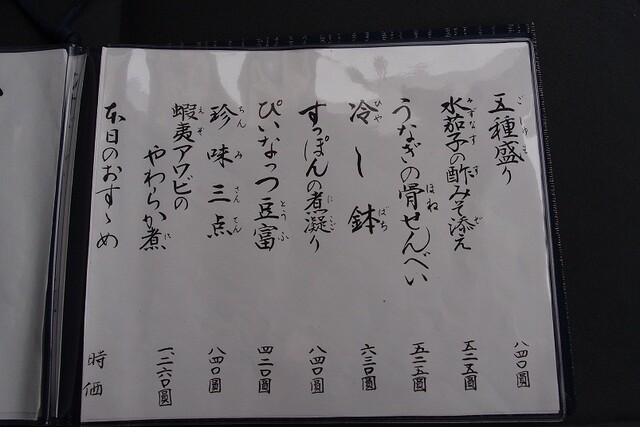 五種盛り 八四〇圓
水茄子の酢みそ添え 五二五圓
うなぎの骨せんべい 五二五圓
冷し鉢 六三〇圓
すっぽんの煮凝り 八四〇圓
ぴいなっつ豆富 四二〇圓
珍味三点 八四〇圓
蝦夷アワビの
やわらか煮 一、二六〇圓
本日のおすゝめ 時価